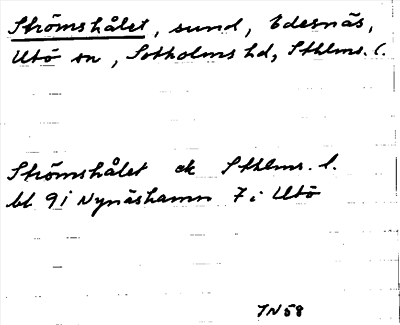 Strömshålet, sund, Edesnäs,
Utö sn, Sotholms hd, Sthlms. l.
Strömshålet ek Sthlms. l.
bl 9 i Nynäshamn 7 i Utö
IN 58